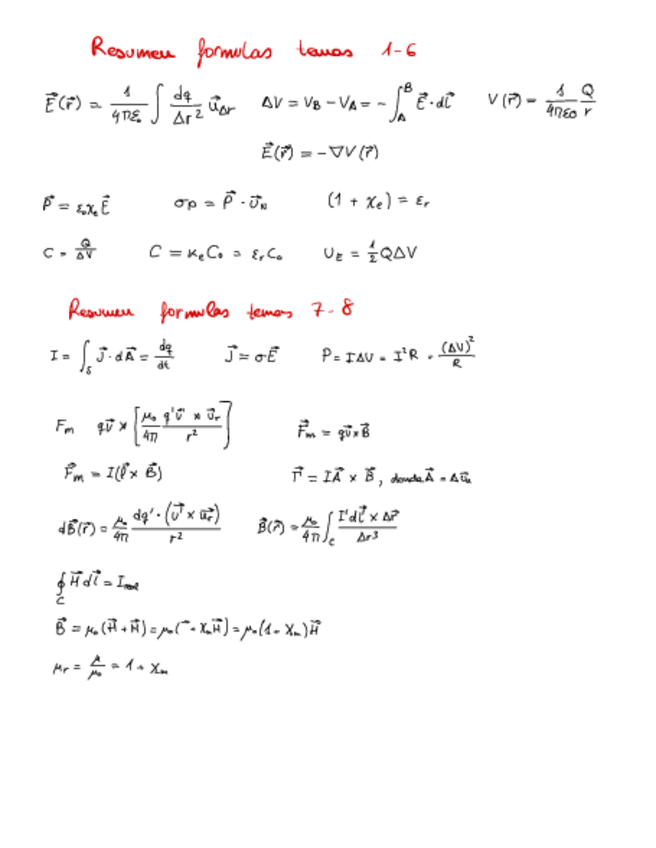 Resumen formulas temas 1-6
E⃗(r⃗) = 1/(4πε₀) ∫ dq/Δr² u⃗_Δr   ΔV = V_B - V_A = - ∫_A^B E⃗·dl⃗   V(r⃗) = 1/(4πε₀) Q/r
E⃗(r⃗) = -∇V(r⃗)
P⃗ = ε₀χₑE⃗   σp = P⃗ · U⃗_N   (1 + χₑ) = εᵣ
C = Q/ΔV   C = κₑC₀ = εᵣC₀   U_E = 1/2 QΔV
Resumen formulas temas 7-8
I = ∫_S J⃗·dA⃗ = dq/dt   J⃗ = σE⃗   P = IΔV = I²R = (ΔV)²/R
Fm qv⃗ × [μ₀/4π q'v⃗' × u⃗ᵣ/r²]   F⃗m = qv⃗×B⃗
F⃗m = I(l⃗ × B⃗)   Γ⃗ = IA⃗ × B⃗, donde A⃗ = A u⃗ₙ
dB⃗(r⃗) = μ₀/4π dq'·(v⃗' × u⃗ᵣ)/r²   B⃗(r⃗) = μ₀/4π ∫_C I'dl⃗ × Δr⃗/Δr³
∮_C H⃗ dl⃗ = I
B⃗ = μ₀(H⃗ + M⃗) = μ₀( + XₘH⃗) = μ₀(1 + Xₘ)H⃗
μr = μ/μ₀ = 1 + Xₘ